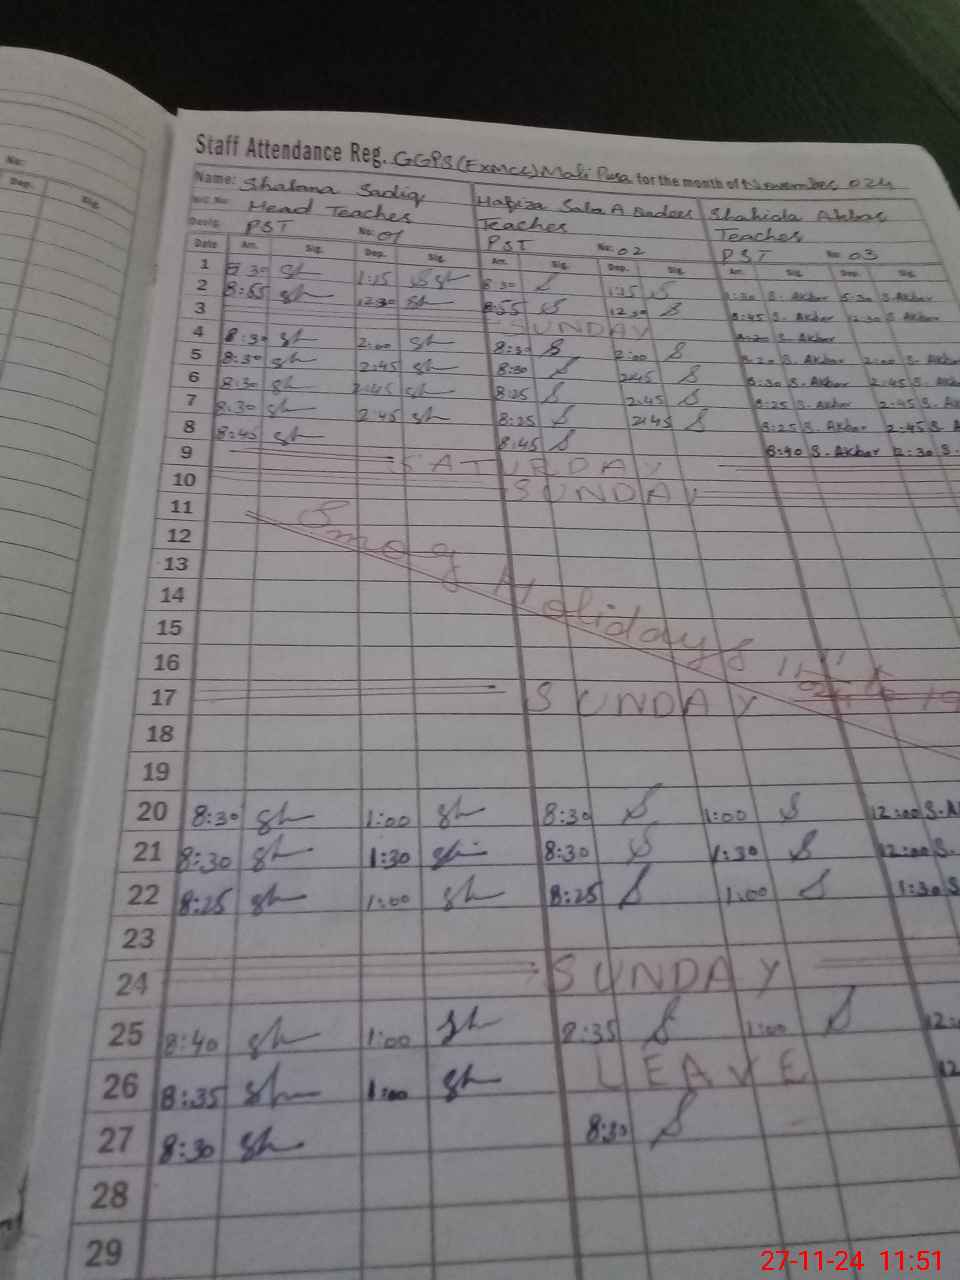 Staff Attendance Reg. GGPS (Ex MCC) Mali Pura for the month of November 024
Name: Shabana Sadiq Hafiza Saba A Shahida Akbar
Head Teacher Teacher Teacher
Desig: PST No: 01 PST No: 02 PST No: 03
Date Arr. Sig. Dep. Sig. Arr. Sig. Dep. Sig. Arr. Sig. Dep. Sig.
1 8:30 sh 1:15 sh 8:30 S 1:15 S S. Akbar S. Akbar
2 8:55 sh 12:30 sh 8:55 S 12:30 S 8:45 S. Akbar 12:30 S. Akbar
3 SUNDAY S. Akbar
4 8:30 sh 2:00 sh 8:30 S 2:00 S 8:20 S. Akbar 2:00 S. Akbar
5 8:30 sh 2:45 sh 8:30 S 2:45 S 8:30 S. Akbar 2:45 S. Akb
6 8:30 sh 2:45 sh 8:25 S 2:45 S 8:25 S. Akbar 2:45 S. Ak
7 8:30 sh 2:45 sh 8:25 S 2:45 S 8:25 S. Akbar 2:45 S. A
8 8:45 sh 8:45 S 8:40 S. Akbar 2:30 S.
9 SATURDAY
10 SUNDAY
11 Smog Holidays
12
13
14
15
16
17 SUNDAY
18
19
20 8:30 sh 1:00 sh 8:30 S 1:00 S 12:00 S. A
21 8:30 sh 1:30 sh 8:30 S 1:30 S 12:00 S.
22 8:25 sh 1:00 sh 8:25 S 1:00 S 1:30 S
23
24 SUNDAY
25 8:40 sh 1:00 sh 8:35 S 1:00 S 12:
26 8:35 sh 1:00 sh LEAVE 12
27 8:30 sh 8:30 S
28
29
27-11-24 11:51